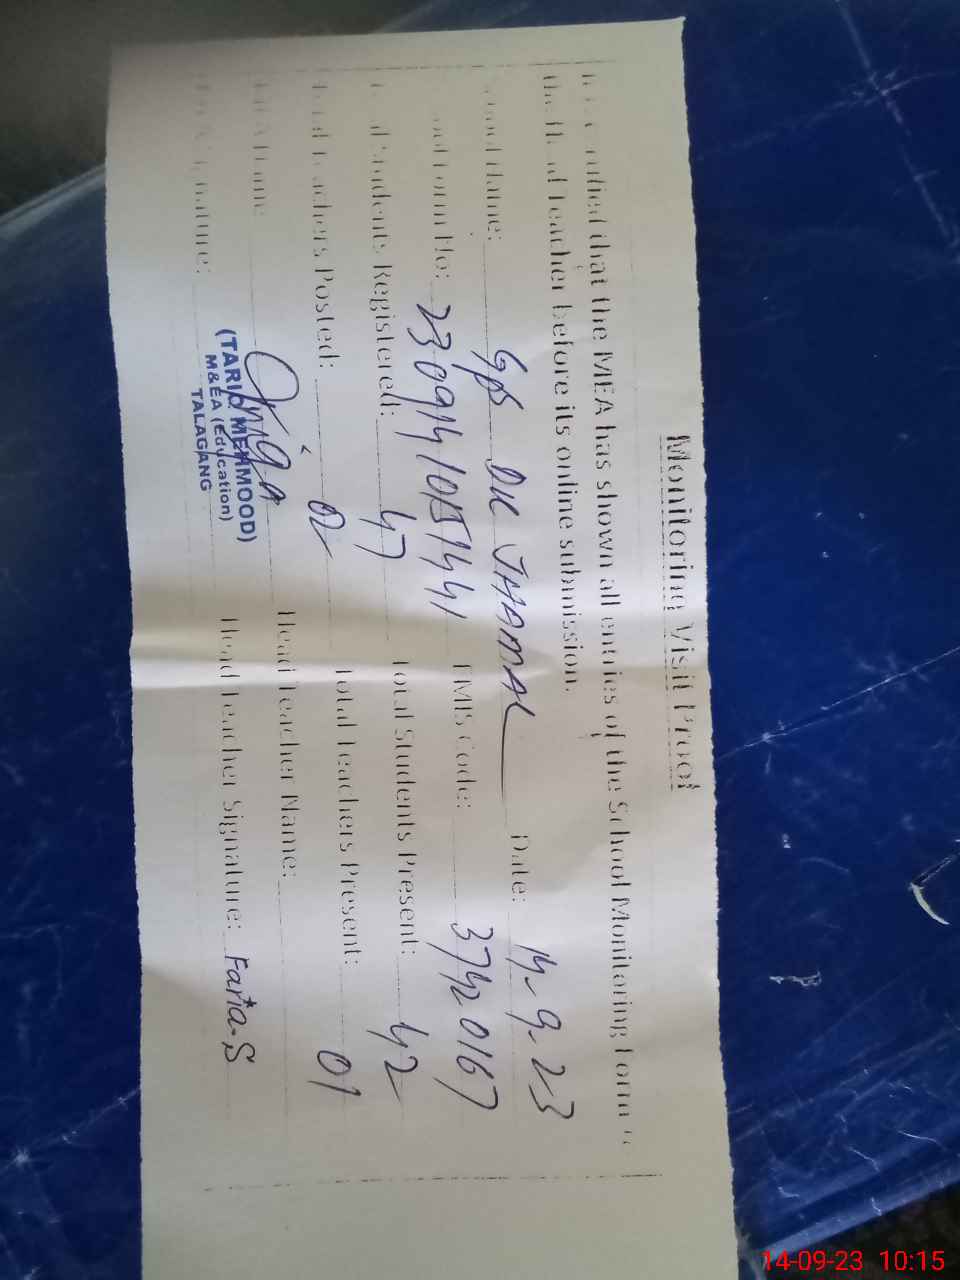 Monitoring Visit Proof
It is certified that the MEA has shown all entries of the School Monitoring Form to
the Head Teacher before its online submission.
School Name: GPS DK JHAMAL Date: 14-9-23
EMIS Code: 37420167
Total Students Registered: 47 Total Students Present: 42
Total Teachers Posted: 02 Total Teachers Present: 01
MEA Name Head Teacher Name:
MEA Signature: Head Teacher Signature: Faria.S
(TARIQ MEHMOOD)
M&EA (Education)
TALAGANG
14-09-23 10:15